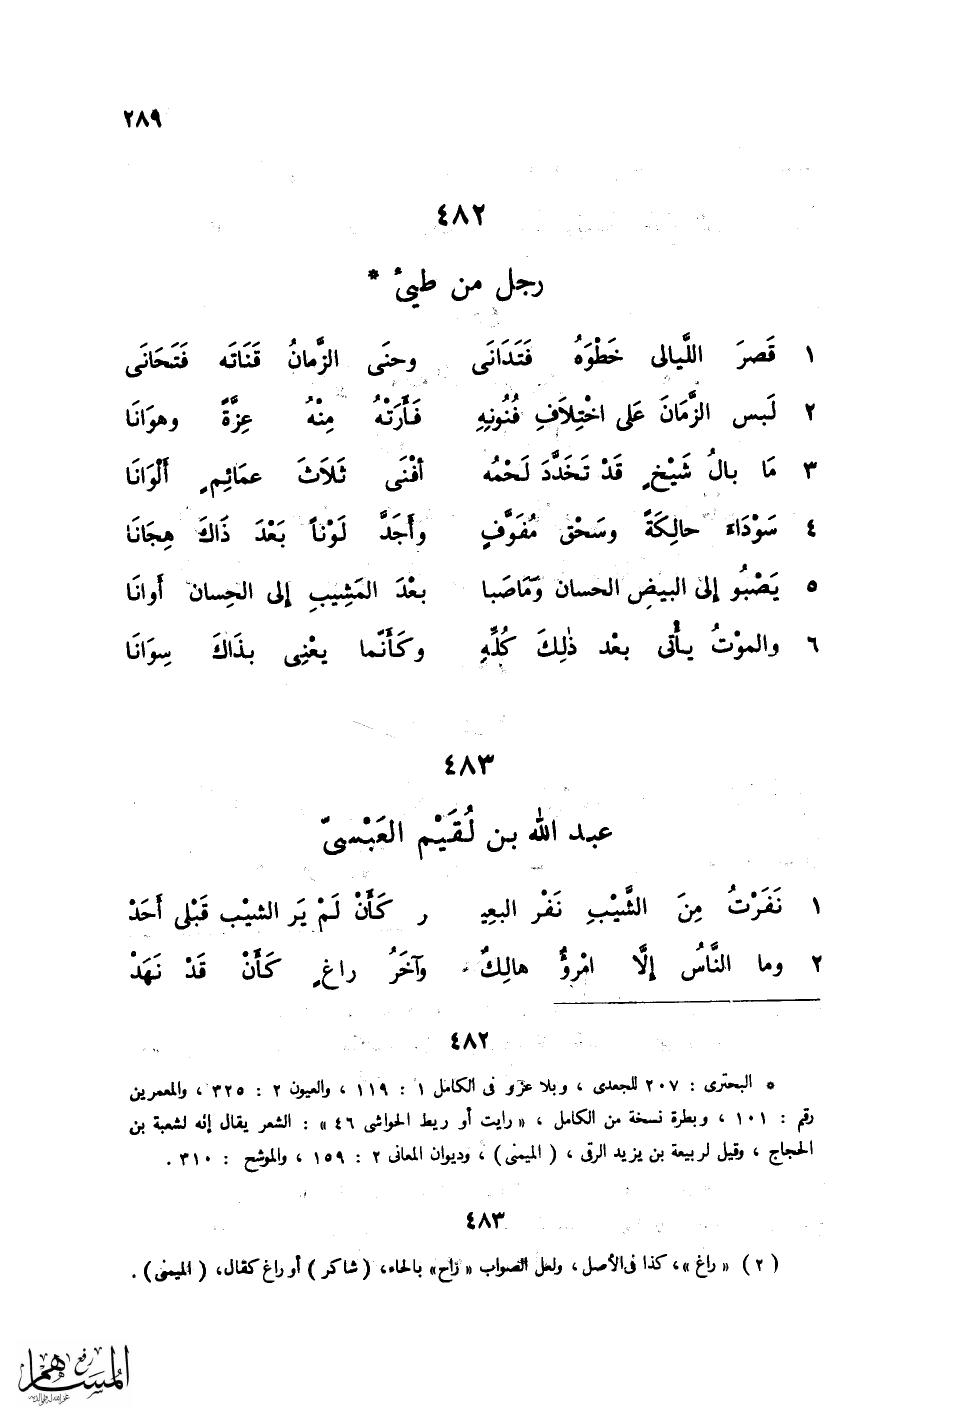 ٢٨٩
٤٨٢
رجل من طيئ *
١ قَصرَ اللَّيالى خَطْوَهُ فَتَدَانَى وحنَى الزَّمانُ قَنَاتَه فَتَحَانَى
٢ لَبس الزَّمَانَ عَلى اخْتِلاَفِ فُنُونِهِ فَأَرَتْهُ مِنْهُ عِزَّةً وهوَانَا
٣ مَا بالُ شَيْخٍ قَدْ تَخَدَّدَ لَحْمُه أفْنَى ثَلاَثَ عمَائِمٍ أَلْوَانَا
٤ سَوْدَاءَ حالِكَةً وسَحْق مُفَوَّفٍ وأَجَدَّ لَوْناً بَعْدَ ذَاكَ هِجَانَا
٥ يَصْبُو إلى البيضِ الحسان ومَاصَبا بعْدَ المَشِيبِ إلى الحِسان أَوانَا
٦ والموْتُ يأْتى بعْد ذٰلِكَ كُلِّهِ وكَأَنَّما يعْنِى بذَاكَ سِوَانَا
٤٨٣
عبد الله بن لُقَيْم العَبْسىّ
١ نَفَرْتُ مِنَ الشَّيْبِ نَفْر البعِيـ ـر كَأَنْ لَمْ يَر الشيْب قَبْلى أَحَدْ
٢ وما النَّاسُ إلَّا امْرِؤٌ هالِكٌ وآخَرُ راغٍ كَأَنْ قَدْ نَهَدْ
٤٨٢
* البحترى : ٢٠٧ للجعدى ، وبلا عزو فى الكامل ١ : ١١٩ ، والعيون ٢ : ٣٢٥ ، والمعمرين
رقم : ١٠١ ، وبطرة نسخة من الكامل ، «رايت أو ربط الحواشى ٤٦» : الشعر يقال إنه لشعبة بن
الحجاج ، وقيل لربيعة بن يزيد الرقى ، (الميمنى) ، وديوان المعانى ٢ : ١٥٩ ، والموشح : ٣١٠ .
٤٨٣
(٢) «راغ» ، كذا فى الأصل ، ولعل الصواب «زاح» بالحاء، (شاكر) أو راغ كقال، (الميمنى) .